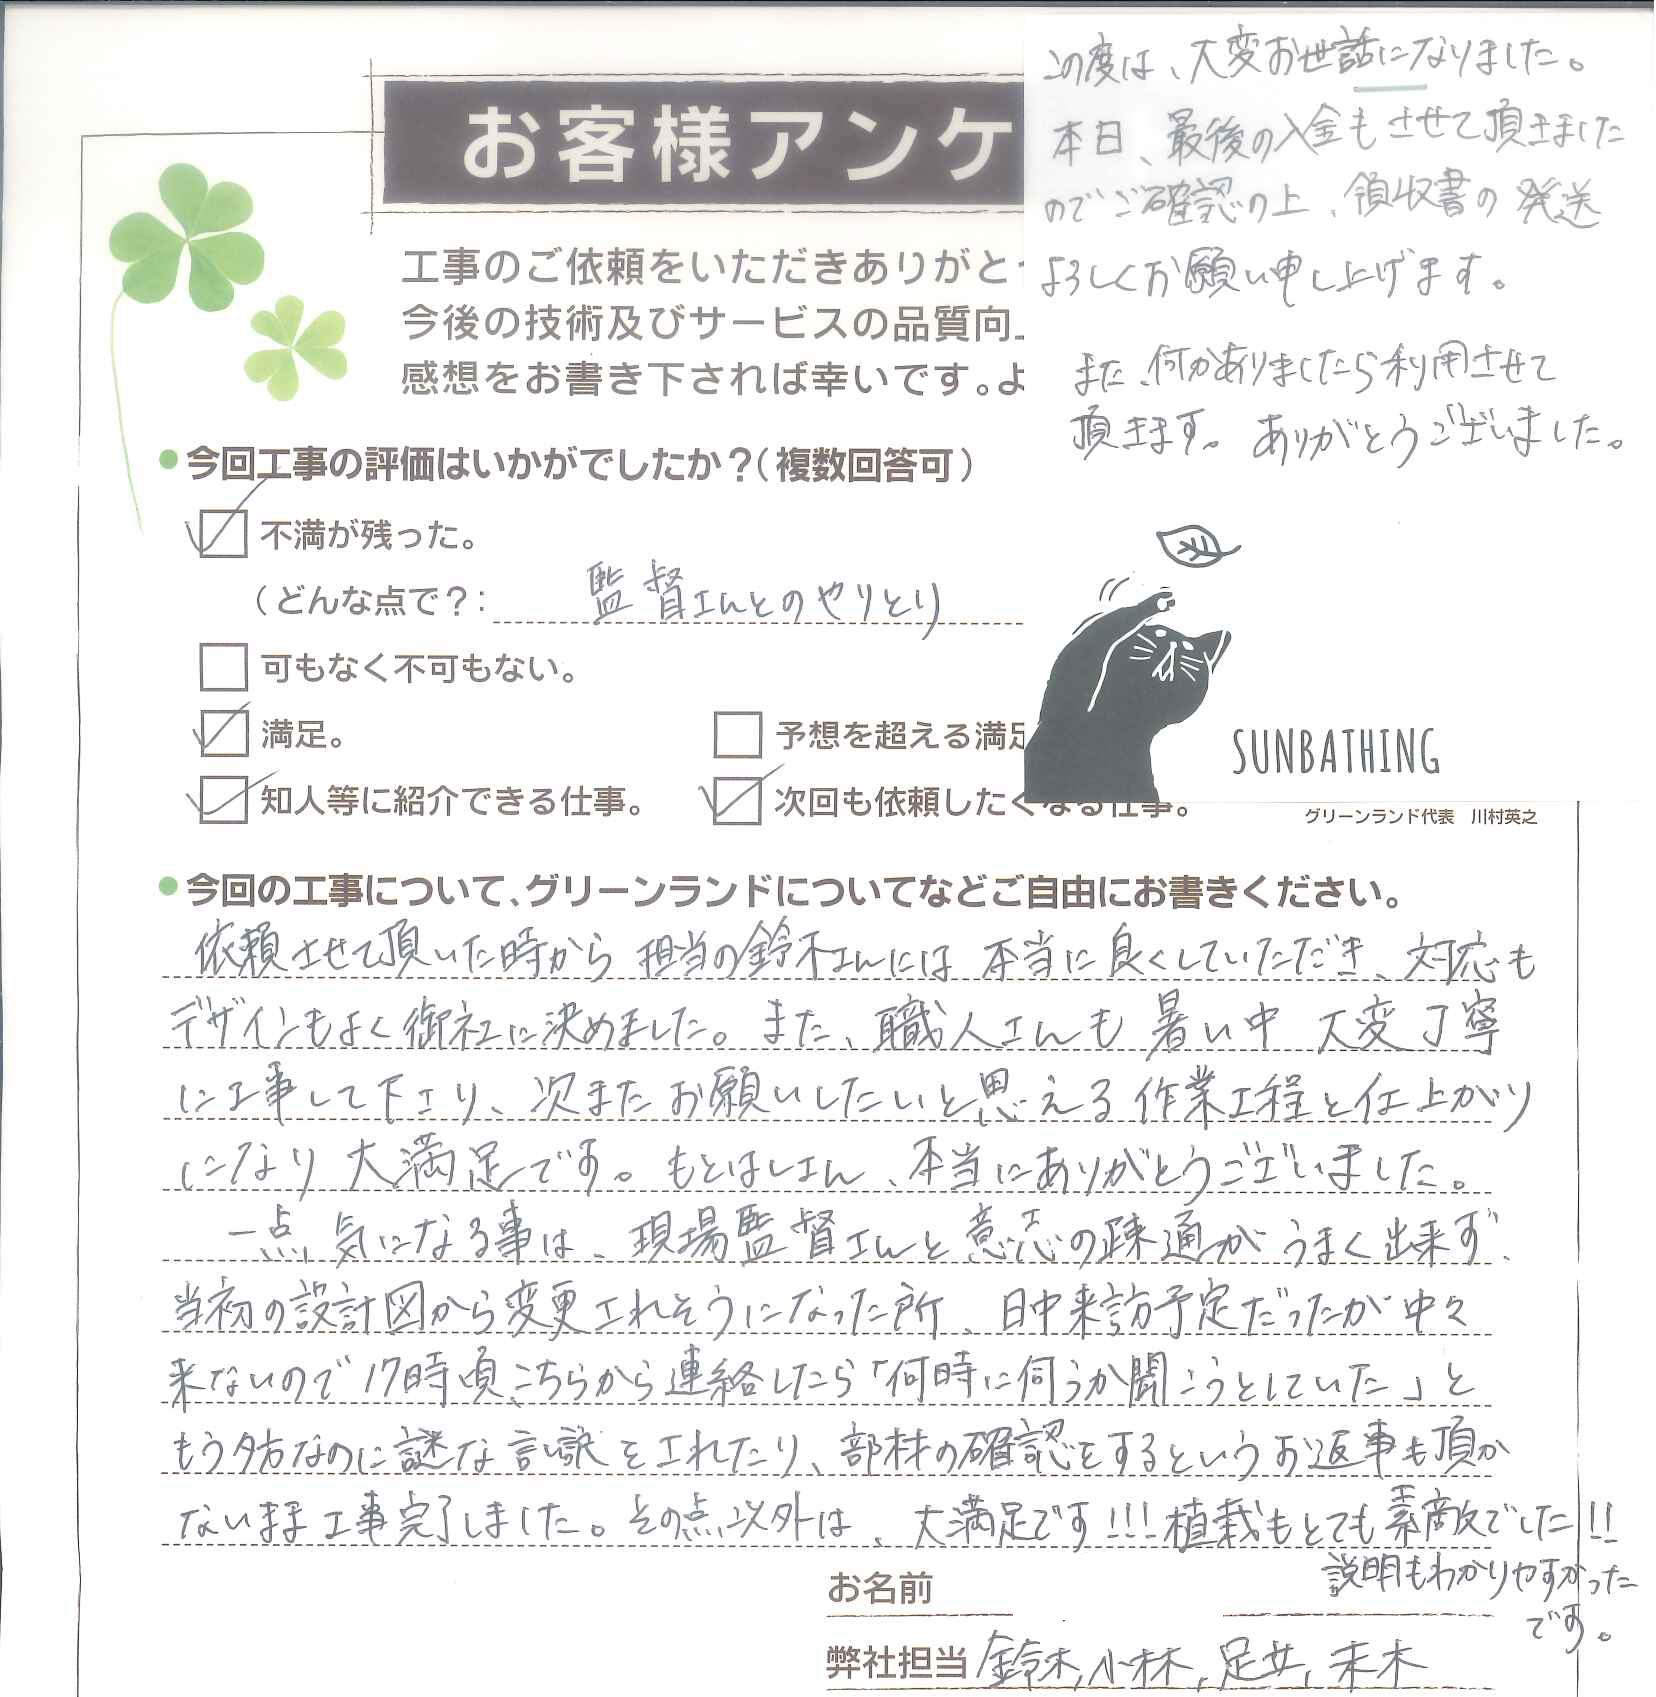 お客様アンケ
工事のご依頼をいただきありがと
今後の技術及びサービスの品質向上
感想をお書き下されば幸いです。よ
この度は、大変お世話になりました。
本日、最後の入金もさせて頂きました
のでご確認の上、領収書の発送
よろしくお願い申し上げます。
また、何かありましたら利用させて
頂きます。ありがとうございました。
SUNBATHING
今回工事の評価はいかがでしたか？（複数回答可）
不満が残った。
（どんな点で？： 監督さんとのやりとり
可もなく不可もない。
満足。 予想を超える満足
知人等に紹介できる仕事。 次回も依頼したくなる仕事。
グリーンランド代表 川村英之
今回の工事について、グリーンランドについてなどご自由にお書きください。
依頼させて頂いた時から 担当の鈴木さんには 本当に良くしていただき、対応も
デザインもよく御社に決めました。また、職人さんも 暑い中 大変丁寧
に工事して下さり、次またお願いしたいと思える作業工程と仕上がり
になり 大満足です。もとはしさん、本当にありがとうございました。
一点 気になる事は、現場監督さんと意志の疎通がうまく出来ず、
当初の設計図から変更されそうになった所、日中来訪予定だったが中々
来ないので17時頃こちらから連絡したら「何時に伺うか聞こうとしていた」と
もう夕方なのに謎な言い訳をされたり、部材の確認をするというお返事も頂か
ないまま工事完了しました。その点以外は、大満足です!!!植栽もとても素敵でした!!
説明もわかりやすかった
です。
お名前
弊社担当 鈴木, 小林, 足立, 末木